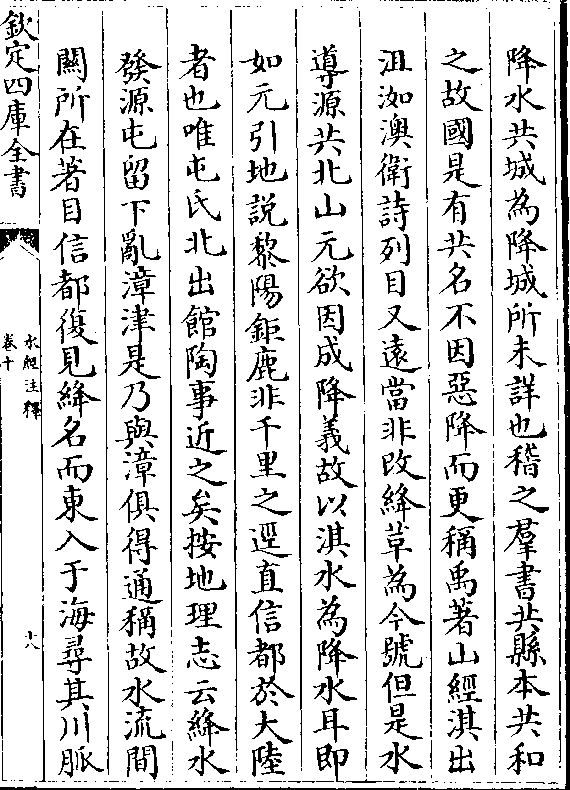 降水共城為降城所未詳也稽之羣書共縣本共和
之故國是有共名不因惡降而更稱禹著山經淇出
沮洳澳衛詩列目又遠當非改絳革為今號但是水
導源共北山元欲因成降義故以淇水為降水耳即
如元引地說黎陽鉅鹿非千里之逕直信都於大陸
者也唯屯氏北出館陶事近之矣按地理志云絳水
發源屯留下亂漳津是乃與漳俱得通稱故水流間
關所在著目信都復見絳名而東入于海尋其川脈
欽定四庫全書
水經注釋
卷十
十八